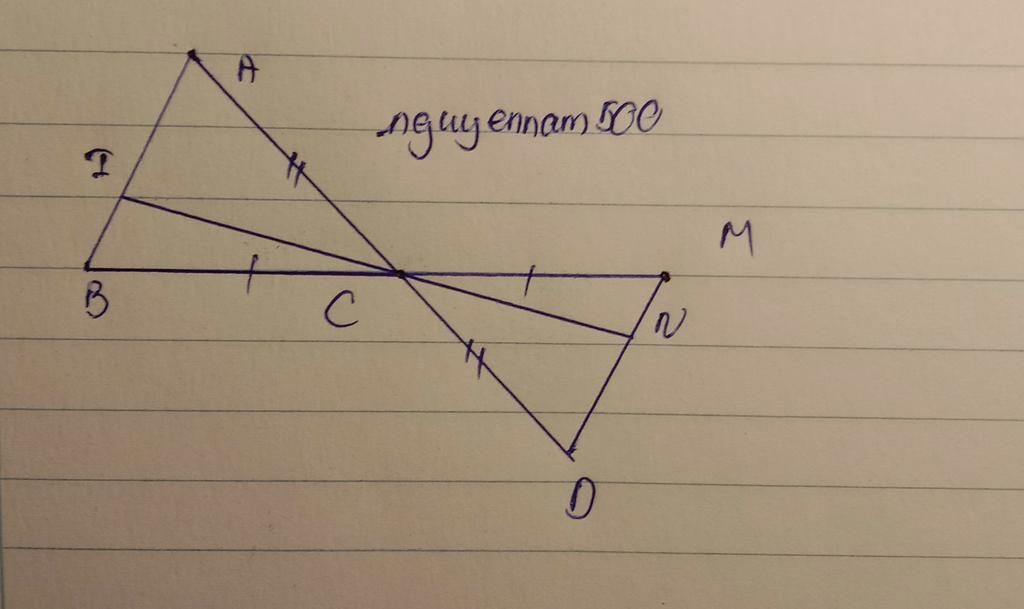 A
nguyennam500
I
M
B
C
N
D